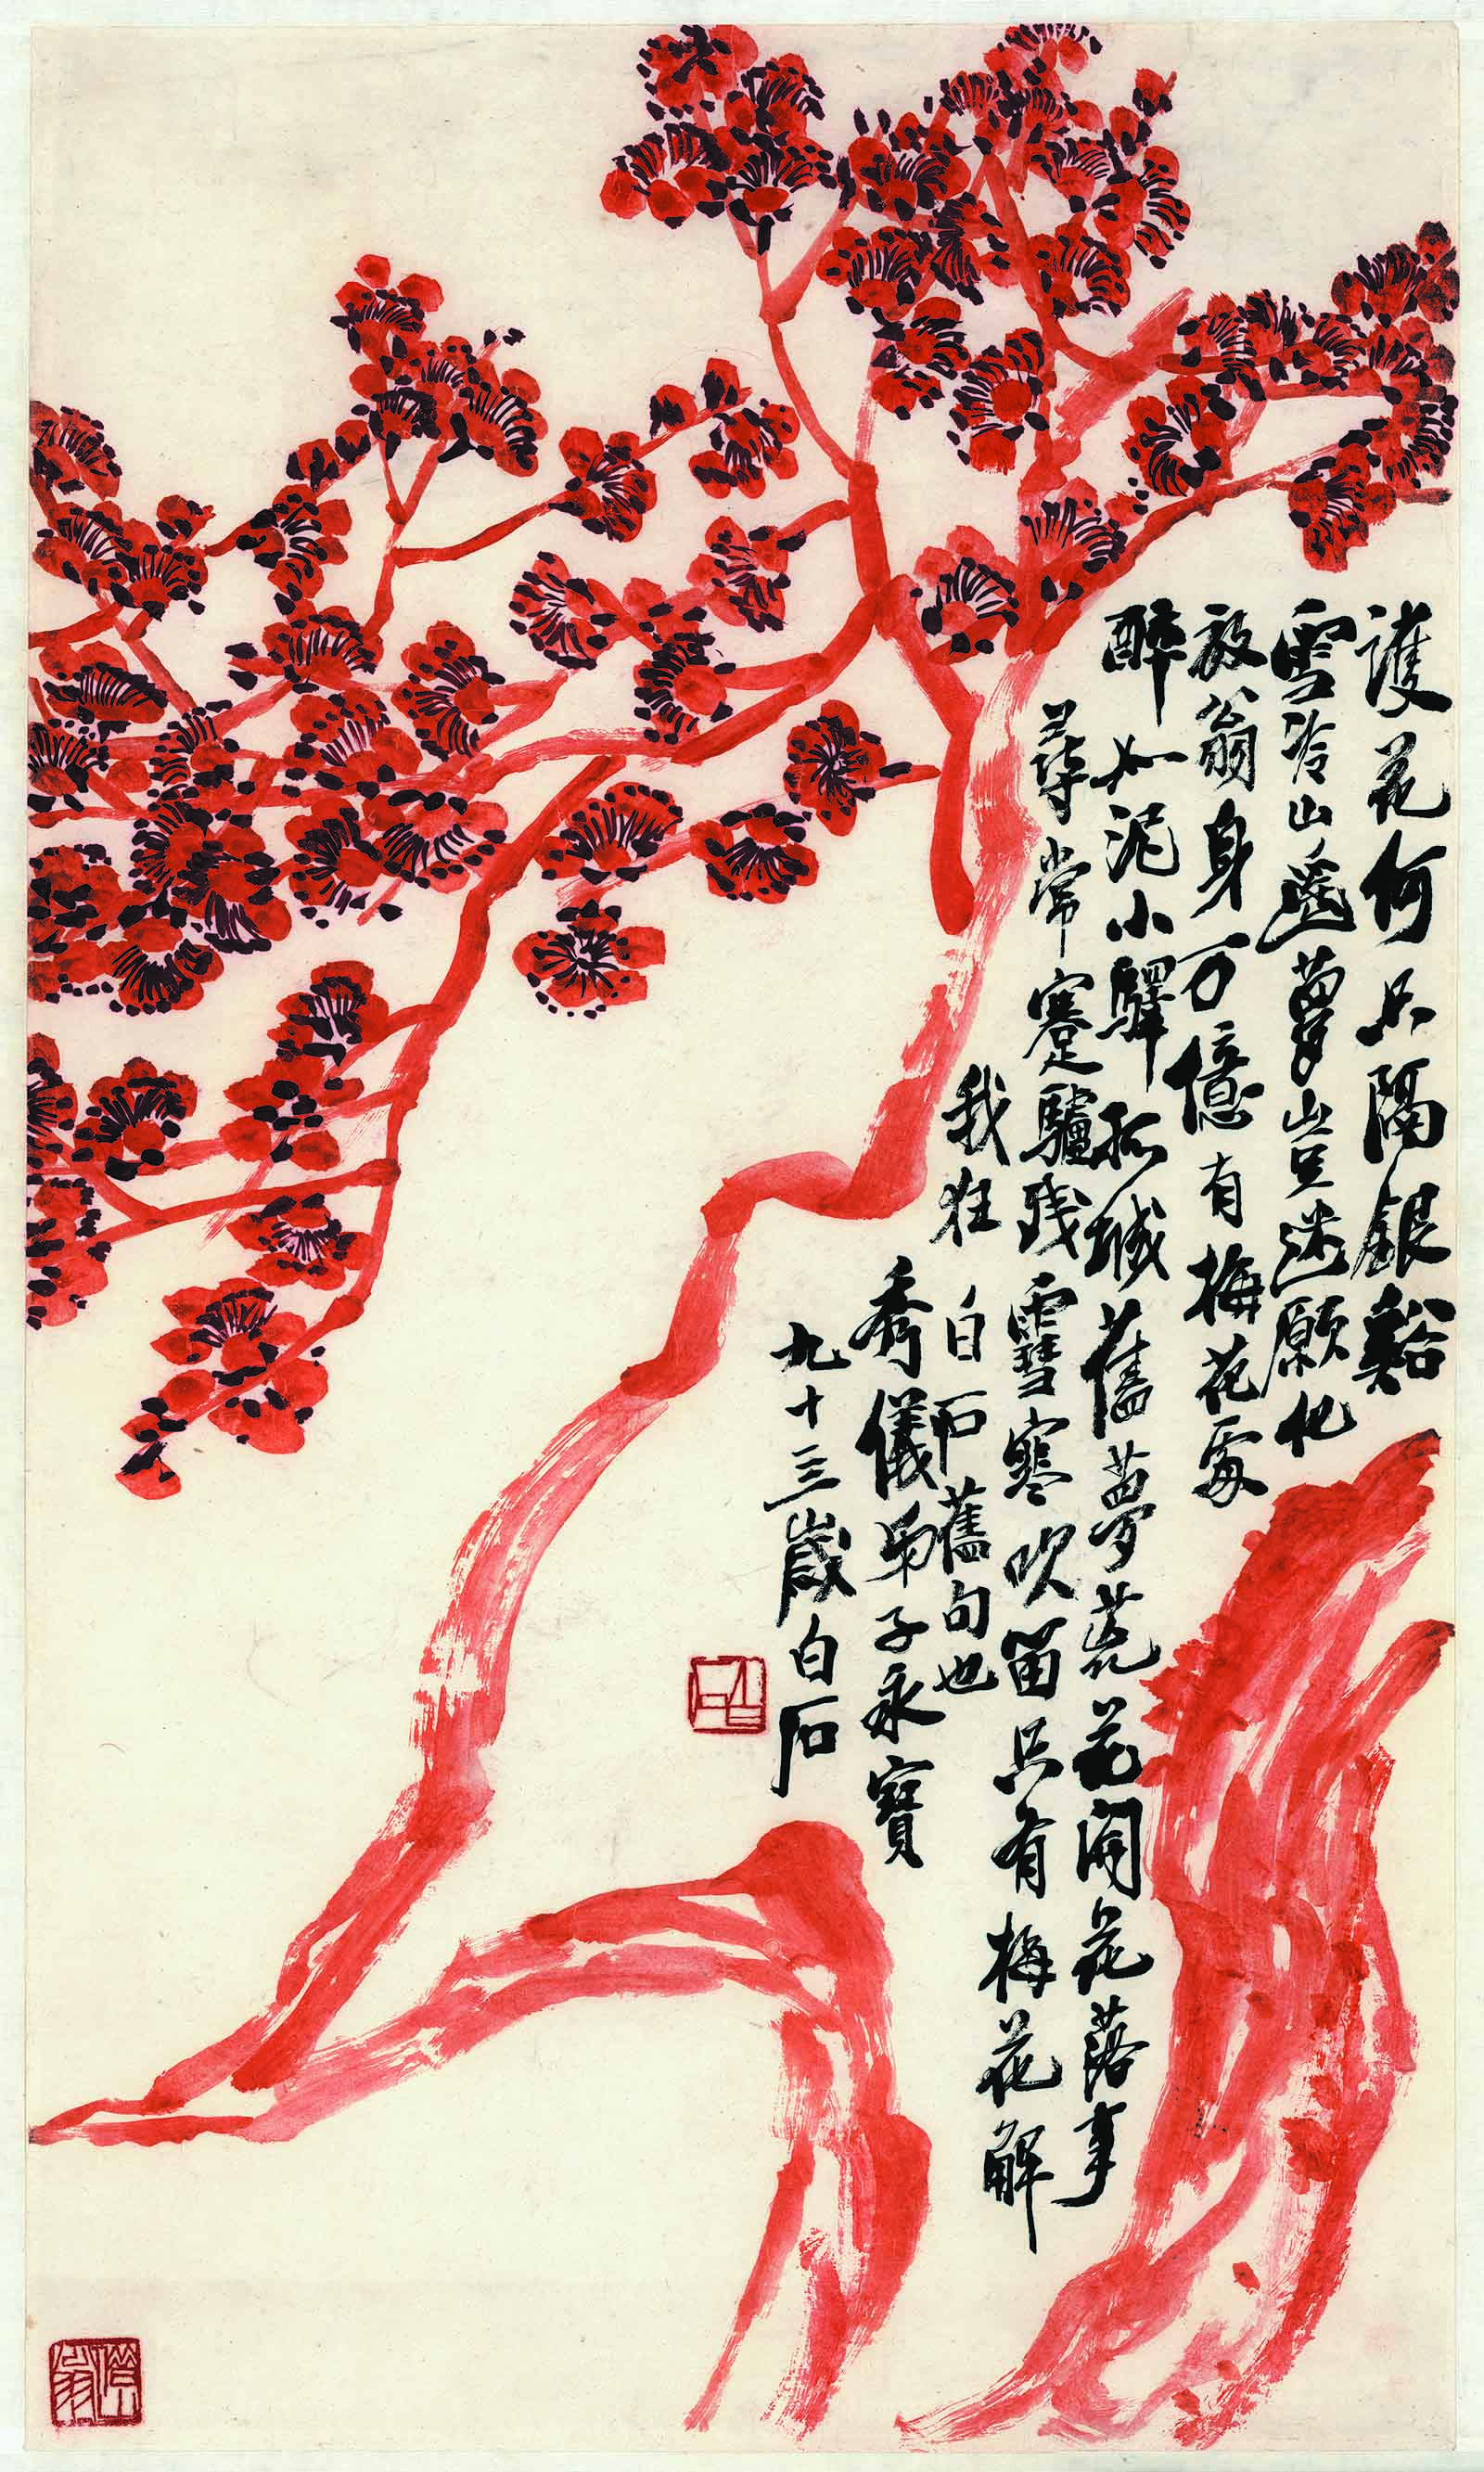 護花何只隔銀谿
雪冷山遙夢豈迷願化
放翁身万億有梅花處
醉如泥小驛孤城舊夢荒花開花落事
尋常蹇驢殘雪寒吹笛只有梅花解
我狂
白石舊句也
秀儀弟子永寶
九十三歲白石